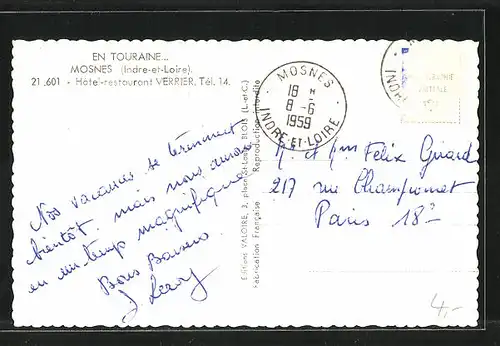 EN TOURAINE...
MOSNES (Indre-et-Loire).
21.601 - Hôtel-restaurant VERRIER, Tél. 14.
Nos vacances se terminent
bientôt. mais nous avons
eu un temps magnifique
Bons Baisers.
J. Leroy
Editions VALOIRE, 2, place BLOIS (L.-et-C.)
Fabrication Française Reproduction interdite
MOSNES
18 H
8 - 6
1959
INDRE-ET-LOIRE
INDRE
M. et Mme Felix Girard
217 rue Championnet
Paris 18e
4,-